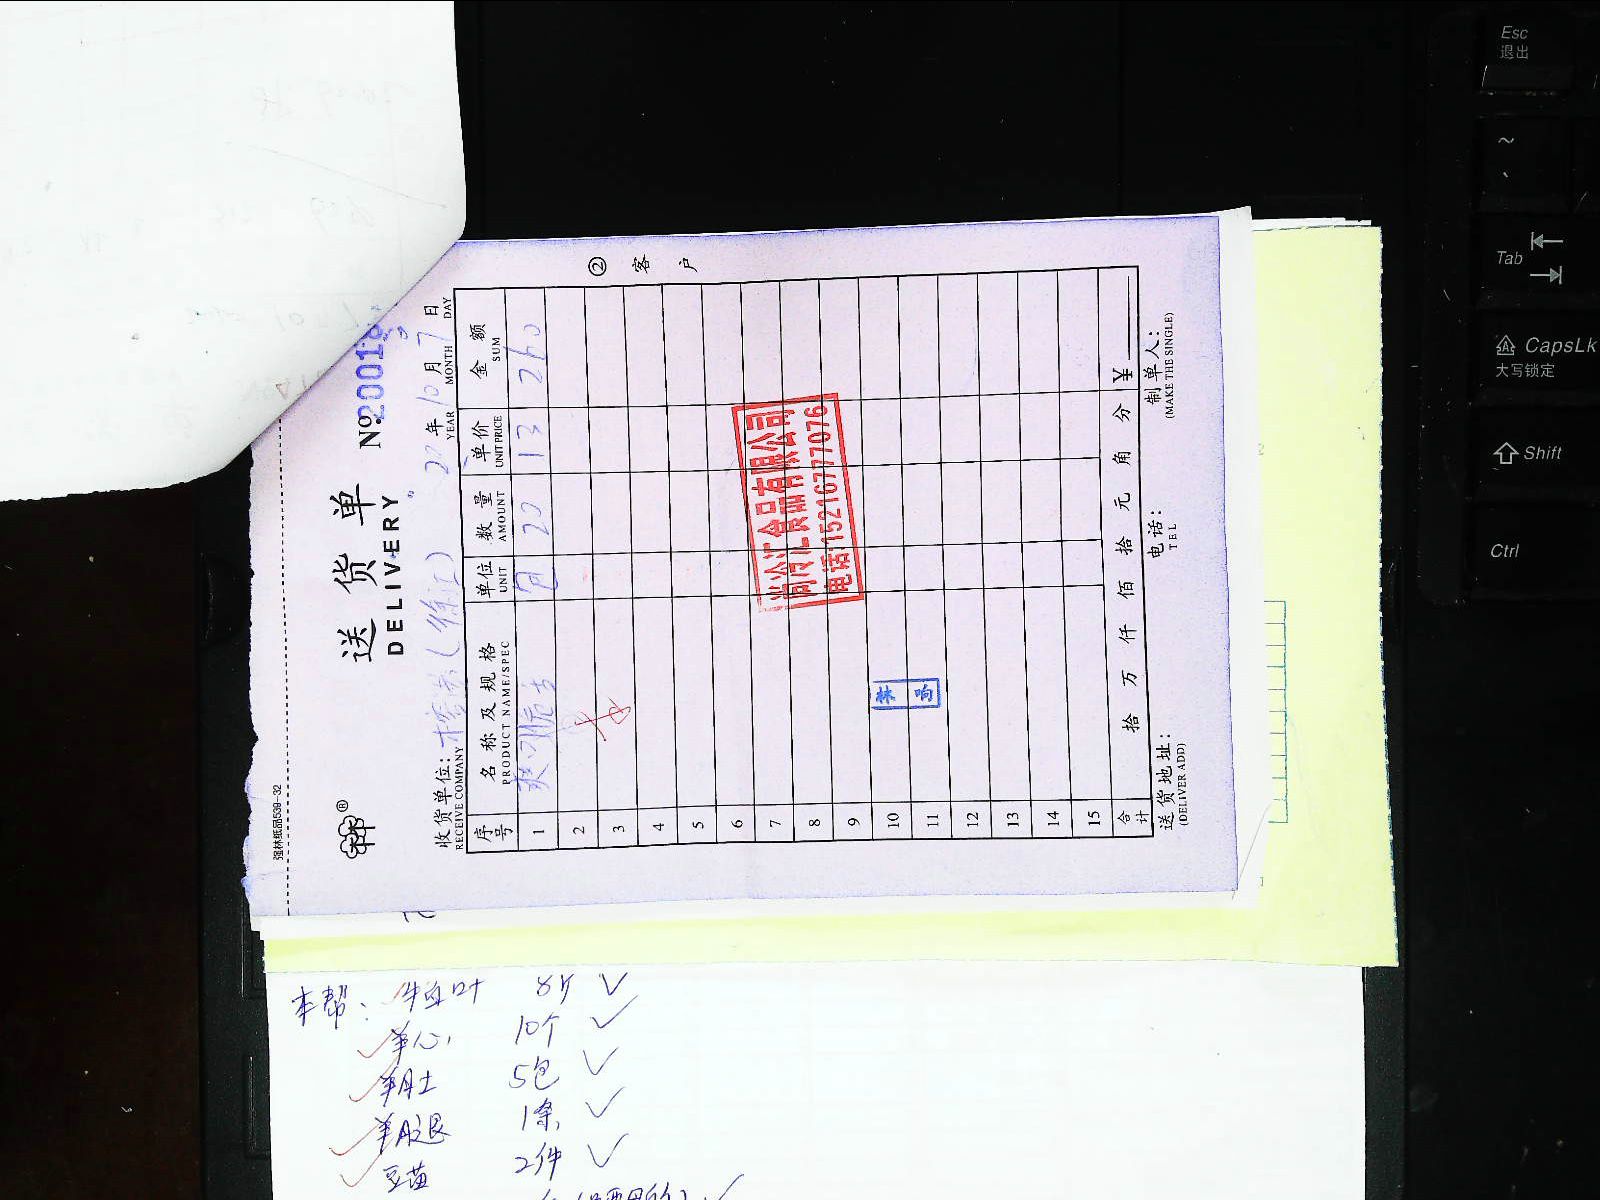 强林纸品539-32
送货单
DELIVERY
№2001
22年10月7日
YEAR MONTH DAY
收货单位:
RECEIVE COMPANY
② 客户
序号 名称及规格 单位 数量 单价 金额
PRODUCT NAME/SPEC UNIT AMOUNT UNIT PRICE SUM
1 20 13 260
2
3
4
5
6
7
8
9
10
11
12
13
14
15
食品有限公司
电话:15216777076
合计 拾 万 仟 佰 拾 元 角 分 ¥
送货地址: 电话: 制单人:
(DELIVER ADD) TEL (MAKE THE SINGLE)
本帮: 牛百叶 8斤 ✓
羊心 10个 ✓
羊肚 5包 ✓
羊腿 1条 ✓
豆苗 2件 ✓
Esc
退出
~
Tab
CapsLk
大写锁定
Shift
Ctrl